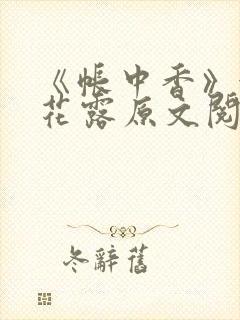 《帐中香》
花露原文阅
冬辭舊